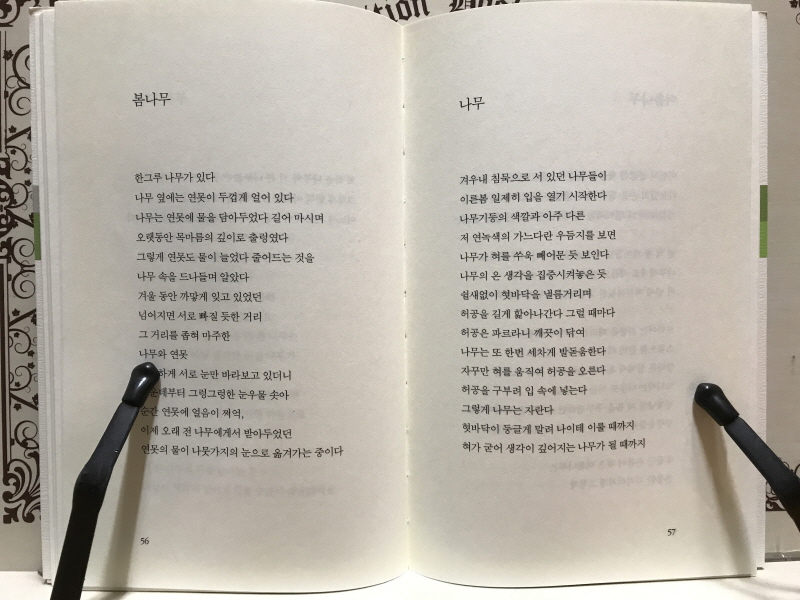 봄나무
한그루 나무가 있다
나무 옆에는 연못이 두껍게 얼어 있다
나무는 연못에 물을 담아두었다 길어 마시며
오랫동안 목마름의 깊이로 출렁였다
그렇게 연못도 물이 늘었다 줄어드는 것을
나무 속을 드나들며 알았다
겨울 동안 까맣게 잊고 있었던
넘어지면 서로 빠질 듯한 거리
그 거리를 좁혀 마주한
나무와 연못
하게 서로 눈만 바라보고 있더니
그렁그렁한 눈우물 솟아
순간 연못에 얼음이 쩌억,
이제 오래 전 나무에게서 받아두었던
연못의 물이 나뭇가지의 눈으로 옮겨가는 중이다
56
나무
겨우내 침묵으로 서 있던 나무들이
이른봄 일제히 입을 열기 시작한다
나무기둥의 색깔과 아주 다른
저 연녹색의 가느다란 우듬지를 보면
나무가 혀를 쑤욱 빼어문 듯 보인다
나무의 온 생각을 집중시켜놓은 듯
쉴새없이 혓바닥을 낼름거리며
허공을 길게 핥아나간다 그럴 때마다
허공은 파르라니 깨끗이 닦여
나무는 또 한번 세차게 발돋움한다
자꾸만 혀를 움직여 허공을 오른다
허공을 구부려 입 속에 넣는다
그렇게 나무는 자란다
혓바닥이 둥글게 말려 나이테 이룰 때까지
혀가 굳어 생각이 깊어지는 나무가 될 때까지
57